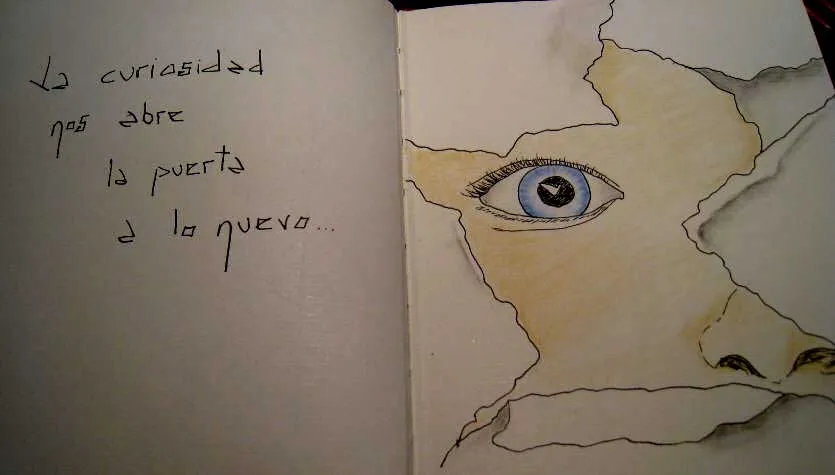 La curiosidad
nos abre
la puerta
a lo nuevo...